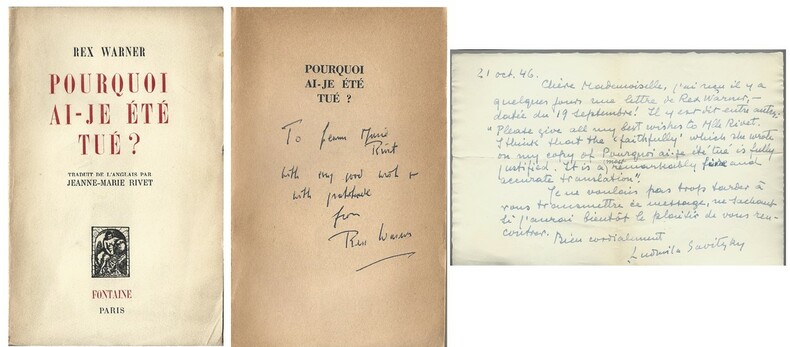 REX WARNER
POURQUOI
AI-JE ÉTÉ
TUÉ ?
TRADUIT DE L'ANGLAIS PAR
JEANNE-MARIE RIVET
FONTAINE
PARIS
POURQUOI
AI-JE ÉTÉ
TUÉ ?
To Jeanne Marie
Rivet
with my good wishes &
with gratitude
from
Rex Warner
21 oct. 46.
Chère Mademoiselle, j'ai reçu il y a
quelques jours une lettre de Rex Warner,-
datée du 19 septembre! Il y est dit entre autres:
"Please give all my best wishes to Mlle Rivet.
I think that the 'faithfully' which she wrote
on my copy of Pourquoi ai-je été tué is fully
justified. It is a remarkably fine and
accurate translation".
Je ne voulais pas trop tarder à
vous transmettre ce message, ne sachant
si j'aurai bientôt le plaisir de vous ren-
contrer. Bien cordialement
Ludmila Savitzky